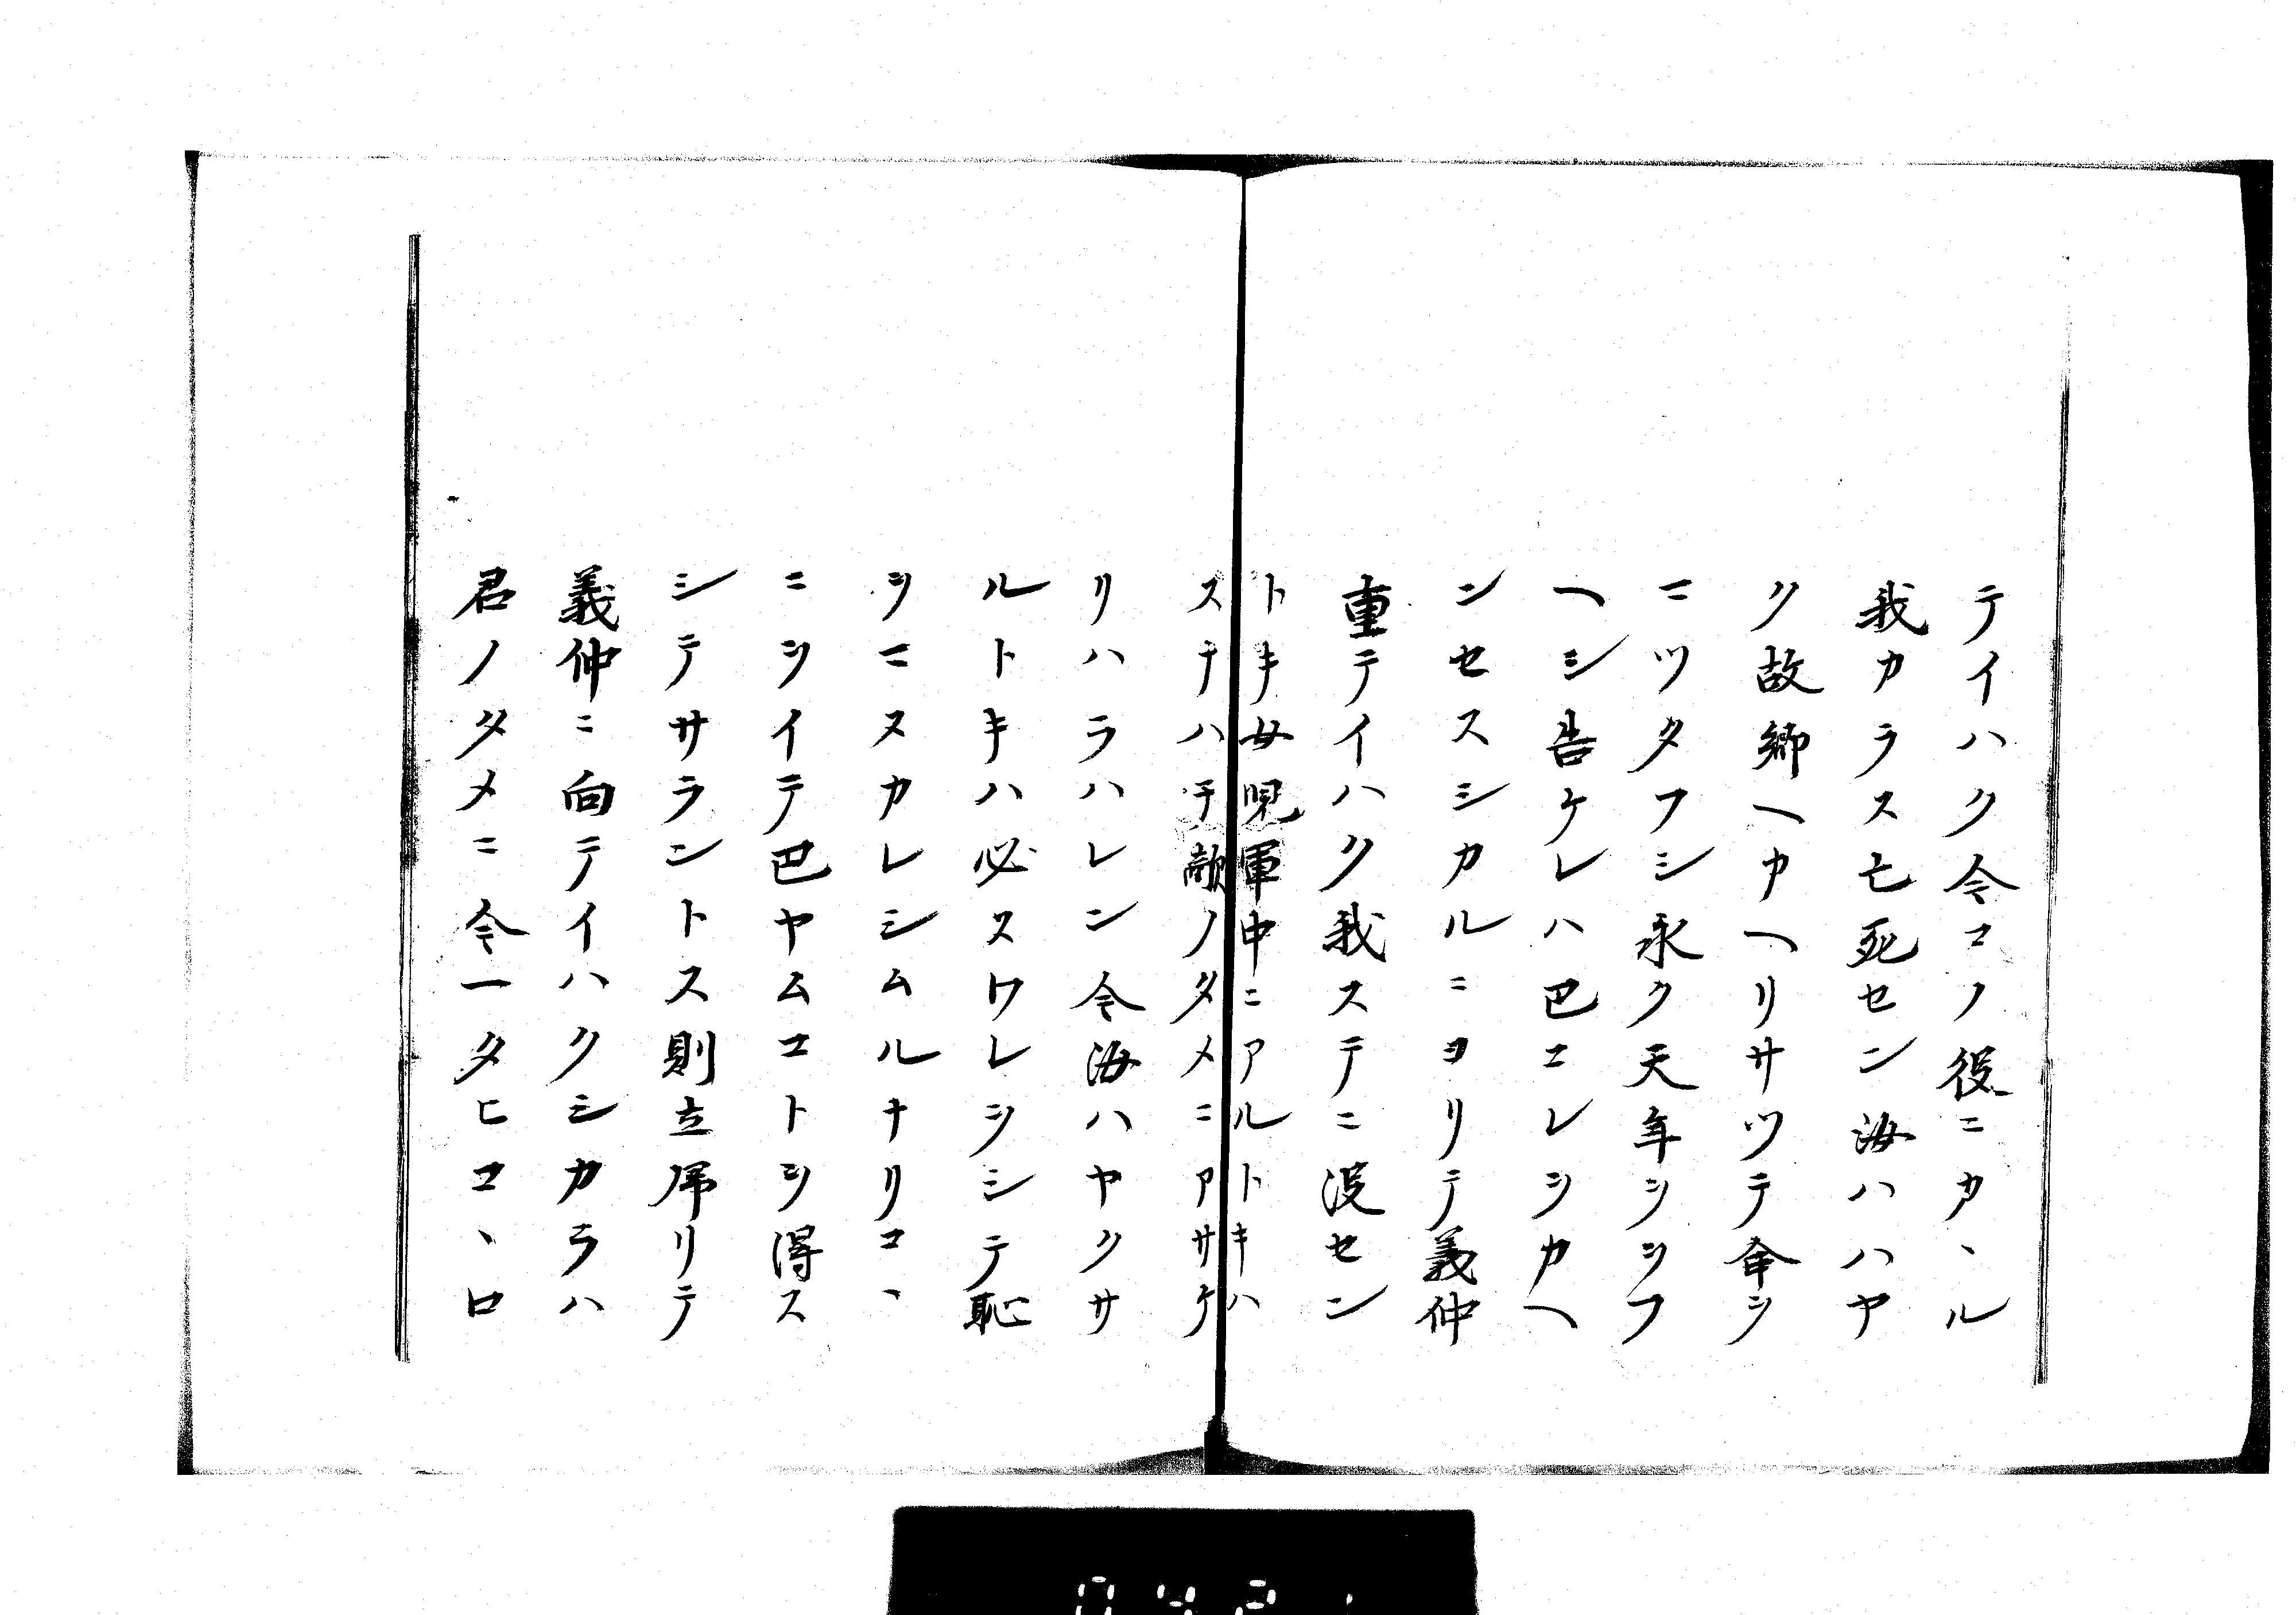 テイハク今コノ役ニカヽル
我カラス亡死セン汝ハハヤ
ク故郷ヘカヘリサツテ命ヲ
ニツタフシ永ク天年ヲヲフ
ヘシ告ケレハ巴コレヲカヘ
ンセスシカルニヨリテ義仲
重テイハク我ステニ没セン
トキ女児軍中ニアルトキハ
ステハチ敵ノタメニアサケ
リハラハレン今汝ハヤクサ
ルトキハ必スワレヲシテ恥
ヲマヌカレシムルナリコヽ
ニヲイテ巴ヤムコトヲ得ス
シテサラントス則立帰リテ
義仲ニ向テイハクシカラハ
君ノタメニ今一タヒコヽロ